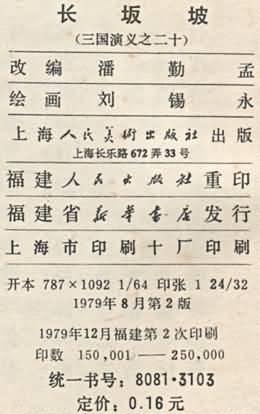 长坂坡
（三国演义之二十）
改编潘勤孟
绘画刘锡永
上海人民美術出版社出版
上海长乐路672弄33号
福建人民出版社重印
福建省新華書店发行
上海市印刷十厂印刷
开本 787×1092 1/64 印张 1 24/32
1979年8月第2版
1979年12月福建第2次印刷
印数 150,001——250,000
统一书号：8081·3103
定价：0.16元